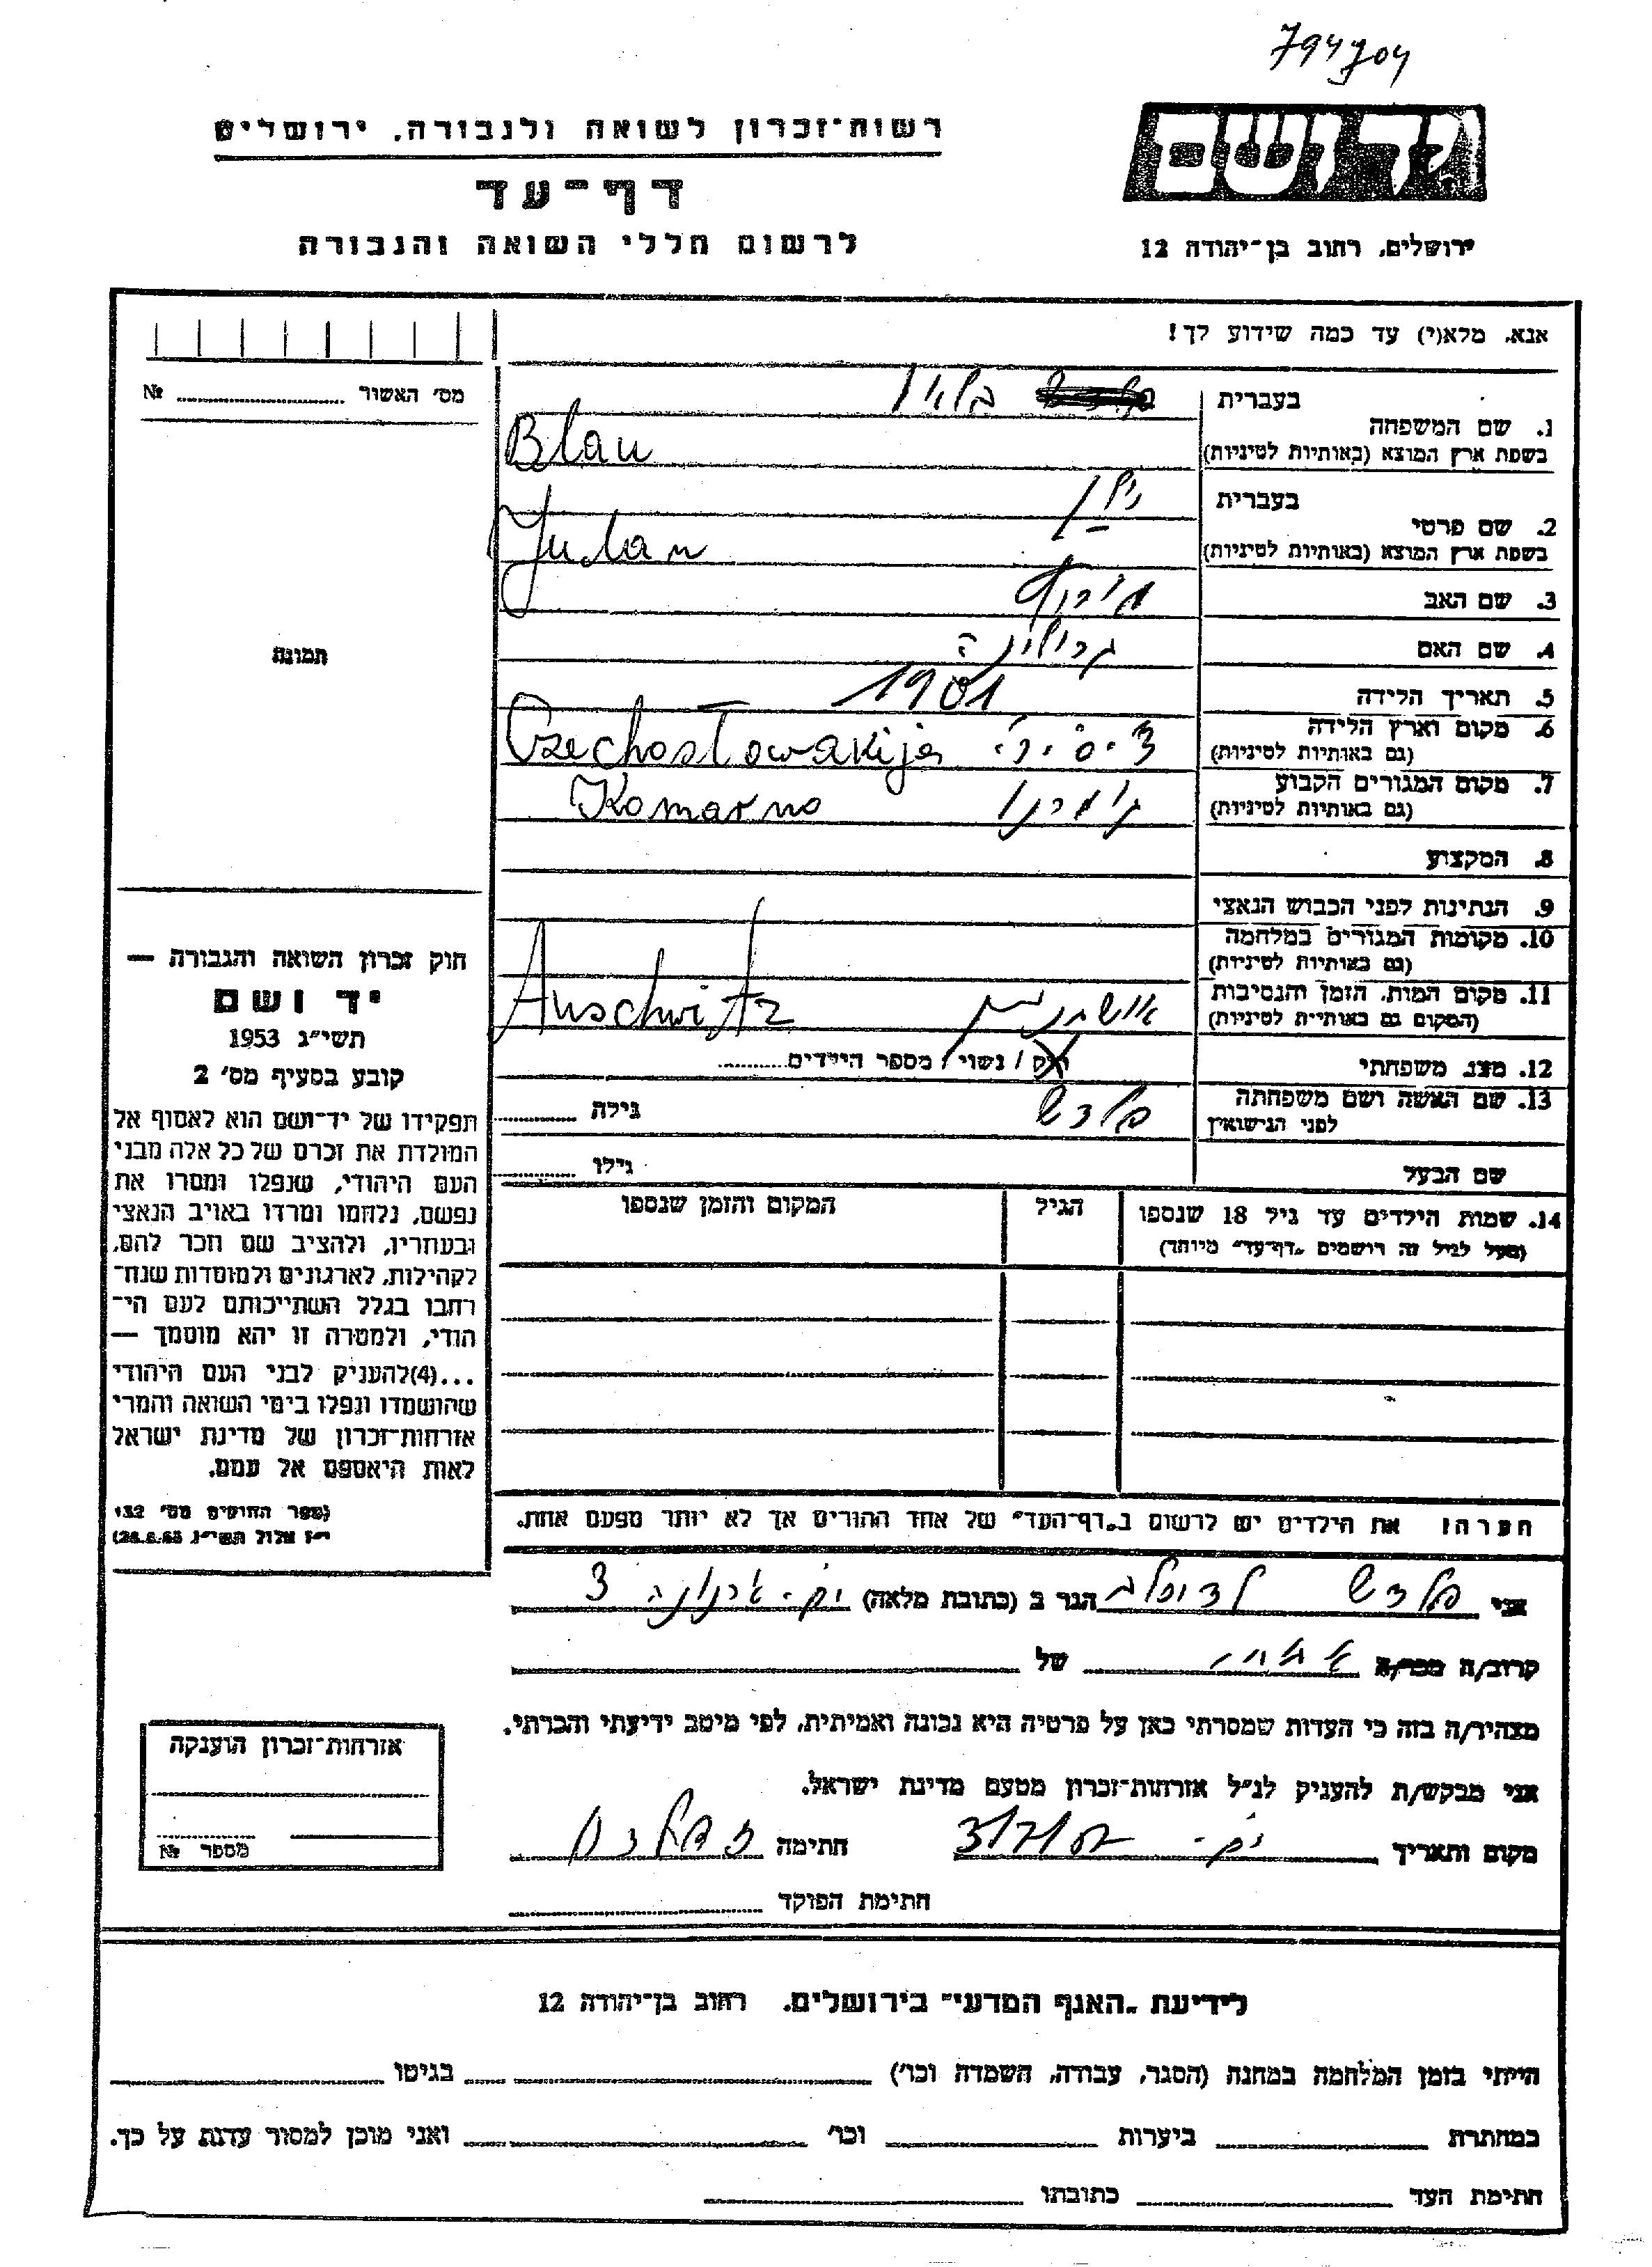 794704
רשות־זכרון לשואה ולגבורה, ירושלים
דף־עד
לרשום חללי השואה והגבורה
יד ושם
ירושלים, רחוב בן־יהודה 12
אנא, מלא(י) עד כמה שידוע לך!
מס׳ האשור № 
תמונה
בעברית בלאו
1. שם המשפחה
בשפת ארץ המוצא (באותיות לטיניות) Blau
בעברית
2. שם פרטי
בשפת ארץ המוצא (באותיות לטיניות)
3. שם האב
4. שם האם
5. תאריך הלידה 1901
6. מקום וארץ הלידה
(גם באותיות לטיניות) Czechosłowakija
7. מקום המגורים הקבוע
(גם באותיות לטיניות) Komarno
8. המקצוע
9. הנתינות לפני הכבוש הנאצי
10. מקומות המגורים במלחמה
(גם באותיות לטיניות)
11. מקום המות, הזמן והנסיבות
(המקום גם באותיות לטיניות) Auschwitz
12. מצב משפחתי רוק / נשוי / מספר הילדים
13. שם האשה ושם משפחתה
לפני הנישואין גילה
שם הבעל גילו
14. שמות הילדים עד גיל 18 שנספו הגיל המקום והזמן שנספו
(מעל לגיל זה רושמים „דף־עד״ מיוחד)
הערה: את הילדים יש לרשום ב„דף־העד״ של אחד ההורים אך לא יותר מפעם אחת.
חוק זכרון השואה והגבורה —
יד ושם
תשי״ג 1953
קובע בסעיף מס׳ 2
תפקידו של יד־ושם הוא לאסוף אל
המולדת את זכרם של כל אלה מבני
העם היהודי, שנפלו ומסרו את
נפשם, נלחמו ומרדו באויב הנאצי
ובעוזריו, ולהציב שם וזכר להם,
לקהילות, לארגונים ולמוסדות שנח־
רבו בגלל השתייכותם לעם הי־
הודי, ולמטרה זו יהא מוסמך —
...(4)להעניק לבני העם היהודי
שהושמדו ונפלו בימי השואה והמרי
אזרחות־זכרון של מדינת ישראל
לאות היאספם אל עמם.
(ספר החוקים מס׳ 132,
י״ז אלול תשי״ג 28.8.53)
אני הגר ב (כתובת מלאה)
קרוב/ה מכר/ה של
מצהיר/ה בזה כי העדות שמסרתי כאן על פרטיה היא נכונה ואמיתית, לפי מיטב ידיעתי והכרתי.
אני מבקש/ת להעניק לנ״ל אזרחות־זכרון מטעם מדינת ישראל.
מקום ותאריך חתימה
חתימת הפוקד
אזרחות־זכרון הוענקה
מספר №
לידיעת „האגף המדעי״ בירושלים, רחוב בן־יהודה 12
הייתי בזמן המלחמה במחנה (הסגר, עבודה, השמדה וכו׳) בגיטו
במחתרת ביערות וכו׳ ואני מוכן למסור עדות על כך.
חתימת העד כתובתו